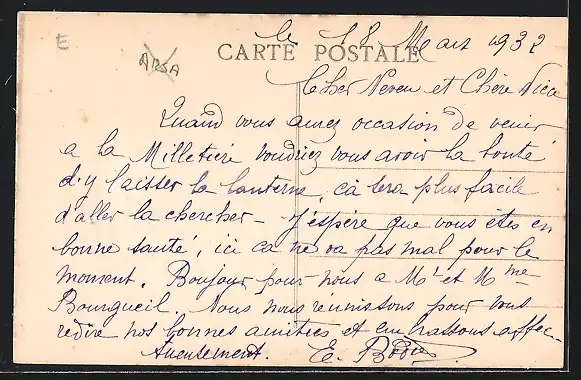 E
le 18 Mars 1932
CARTE POSTALE
Cher Neveu et Chère Nièce
Quand vous aurez occasion de venir
a la Milletière voudriez vous avoir la bonté
d'y laisser la lanterne, ca sera plus facile
d'aller la chercher – J'espère que vous êtes en
bonne santé, ici ca ne va pas mal pour le
moment. Boujour pour nous a Mr et Mme
Bourgueil. Nous nous réunissons pour vous
redire nos bonnes amitiés et embrassons affec-
tueusement. E.